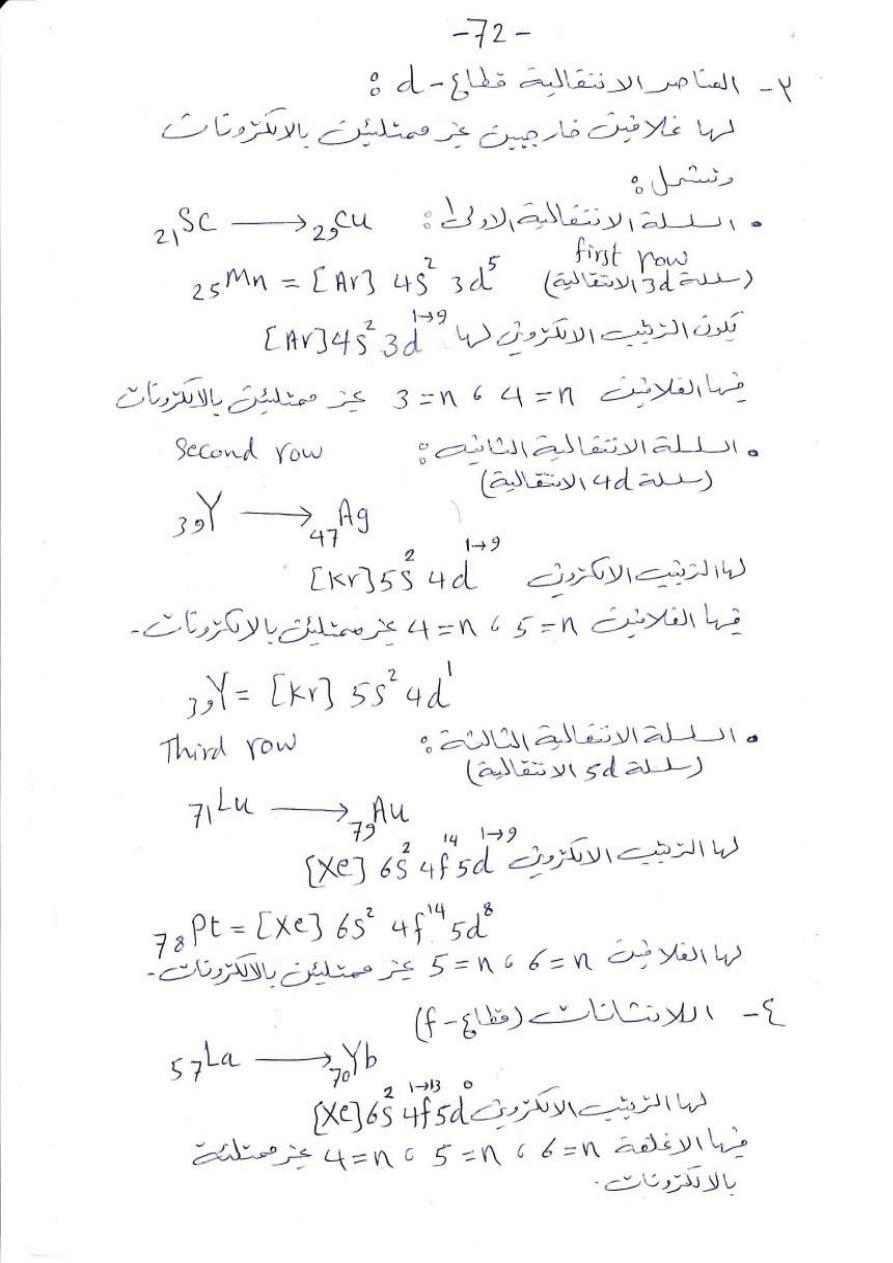 -72-
٣- العناصر الانتقالية قطاع-d :
لها غلافين خارجيين غير ممتلئين بالالكترونات
وتشمل :
• السلسلة الانتقالية الاولى : ₂₁Sc ⟶ ₂₉Cu
first row
(سلسلة 3d الانتقالية) ₂₅Mn = [Ar] 4s² 3d⁵
يكون الترتيب الالكتروني لها [Ar]4s² 3d¹→⁹
فيها الغلافين 4=n ، 3=n غير ممتلئين بالالكترونات
• السلسلة الانتقالية الثانيه : Second row
(سلسلة 4d الانتقالية)
₃₉Y ⟶ ₄₇Ag
لها الترتيب الالكتروني [Kr]5s² 4d¹→⁹
فيها الغلافين 5=n ، 4=n غير ممتلئين بالالكترونات.
₃₉Y= [Kr] 5s² 4d¹
• السلسلة الانتقالية الثالثة : Third row
(سلسلة 5d الانتقالية)
₇₁Lu ⟶ ₇₉Au
لها الترتيب الالكتروني [Xe] 6s² 4f¹⁴ 5d¹→⁹
₇₈Pt = [Xe] 6s² 4f¹⁴ 5d⁸
لها الغلافين 6=n ، 5=n غير ممتلئين بالالكترونات.
٤- اللانثانات (قطاع-f)
₅₇La ⟶ ₇₀Yb
لها الترتيب الالكتروني [Xe]6s² 4f¹→¹³ 5d⁰
فيها الاغلفة 6=n ، 5=n ، 4=n غير ممتلئة
بالالكترونات.